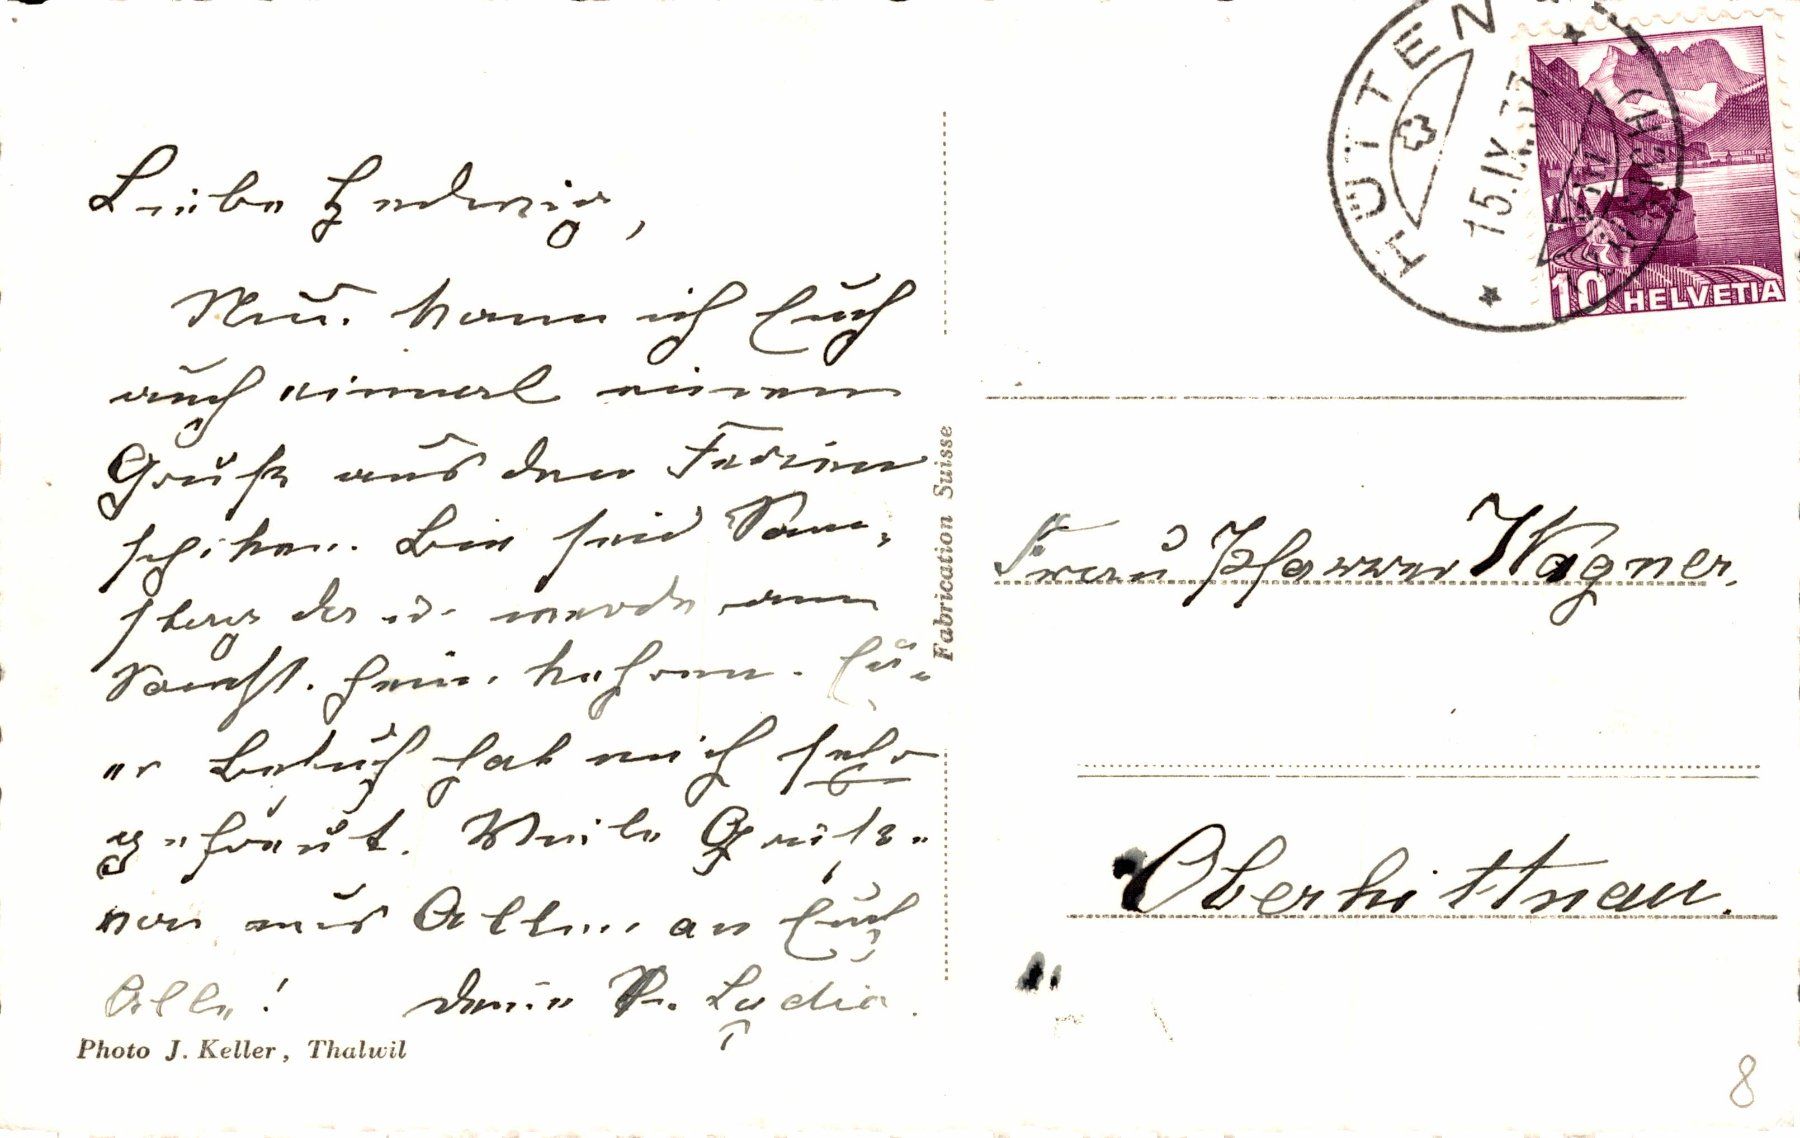 Liebe Hedwig,
Nun kann ich Euch
auch einmal einen
Gruß aus den Ferien
schiken. Bin seid Sam-
stag da u. werde am
Samst. heim kehren. Eu-
er Besuch hat mich sehr
gefreut. Viele Grüße
von uns Allen an Euch
Alle! Deine Lydia.
Photo J. Keller, Thalwil
Fabrication Suisse
HÜTTEN
15.IX.37
(ZÜRICH)
10 HELVETIA
Frau Pfarrer Wagner,
Oberhittnau.
8